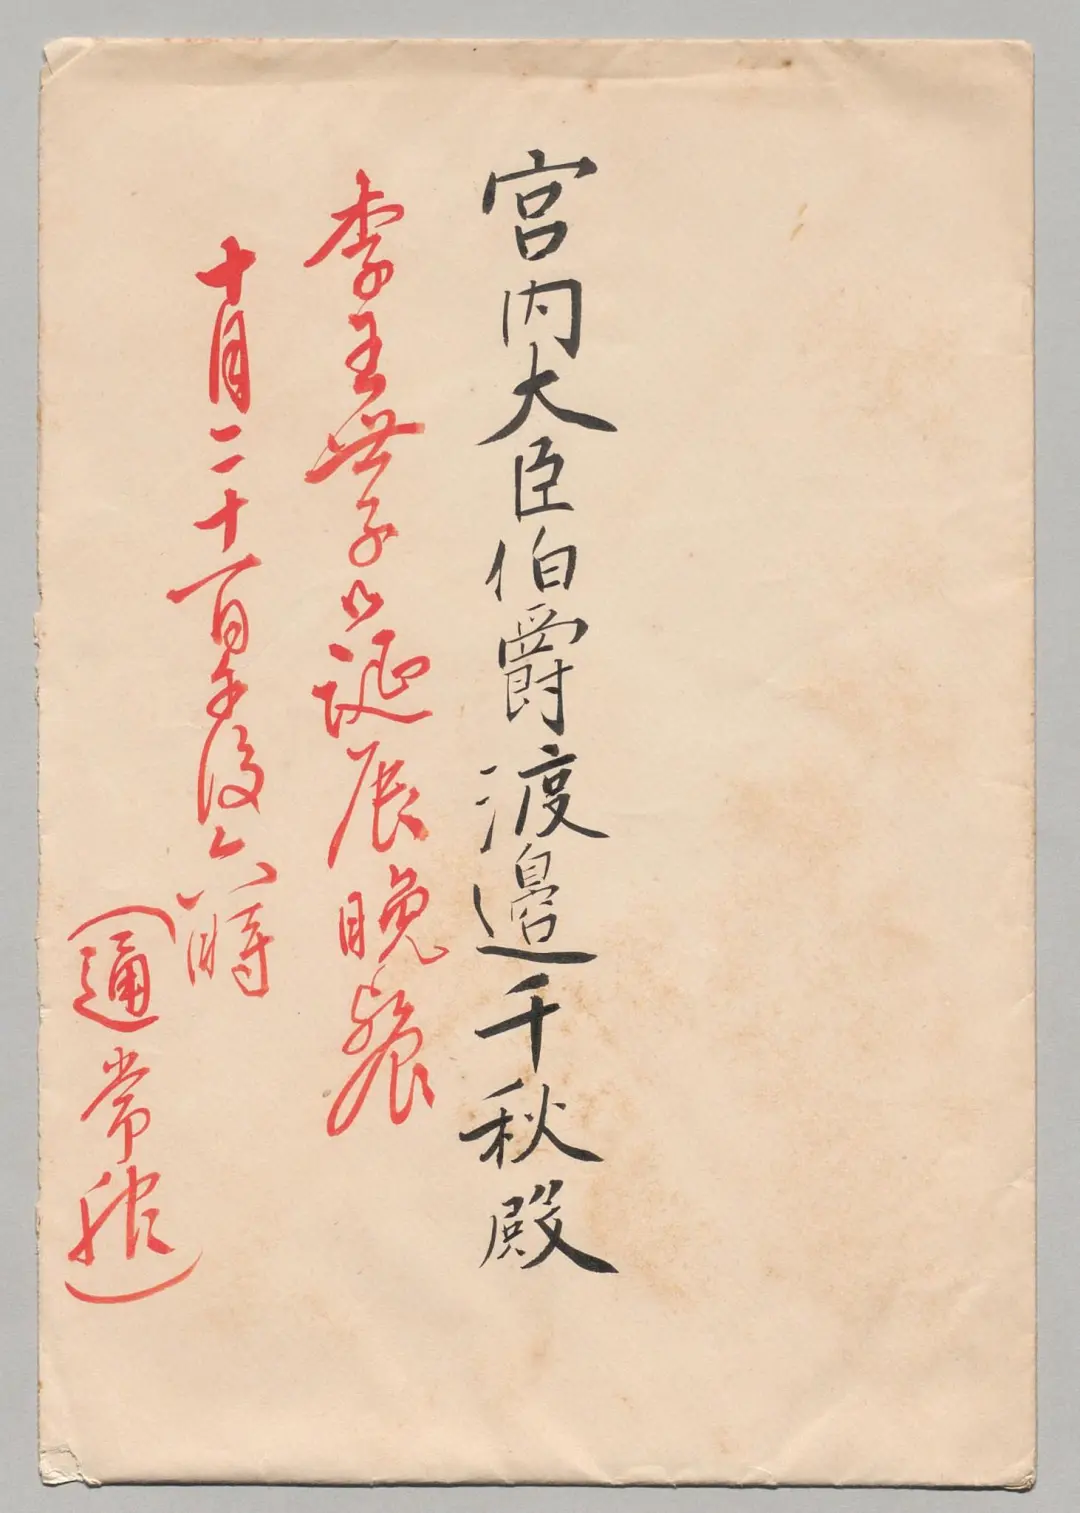 宮内大臣伯爵渡邉千秋殿
李王世子御誕辰晩餐
十月二十一日午後六時
（通常服）